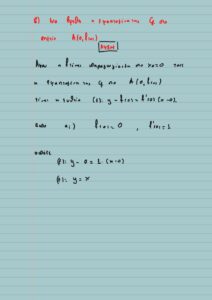 β) Να βρεθεί η εφαπτομένη της Cf στο
σημείο A(0, f(0))
ΛΥΣΗ
Αφού η f είναι παραγωγίσιμη στο x0=0 τότε
η εφαπτομένη της Cf στο A(0, f(0))
είναι η ευθεία (ε): y - f(0) = f'(0) (x-0)
από α) f(0) = 0 , f'(0) = 1
οπότε
(ε): y - 0 = 1 (x-0)
(ε): y = x